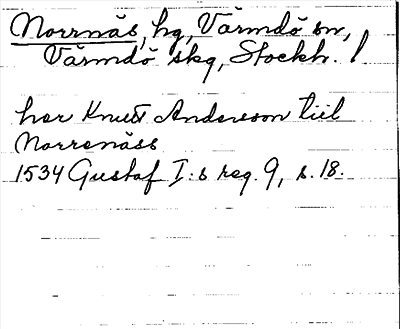 Norrnäs, hg, Värmdö sn,
Värmdö skg, Stockh. l
her Knutt Andersson tiil
Norrenäss
1534 Gustaf I:s reg. 9, s. 18.